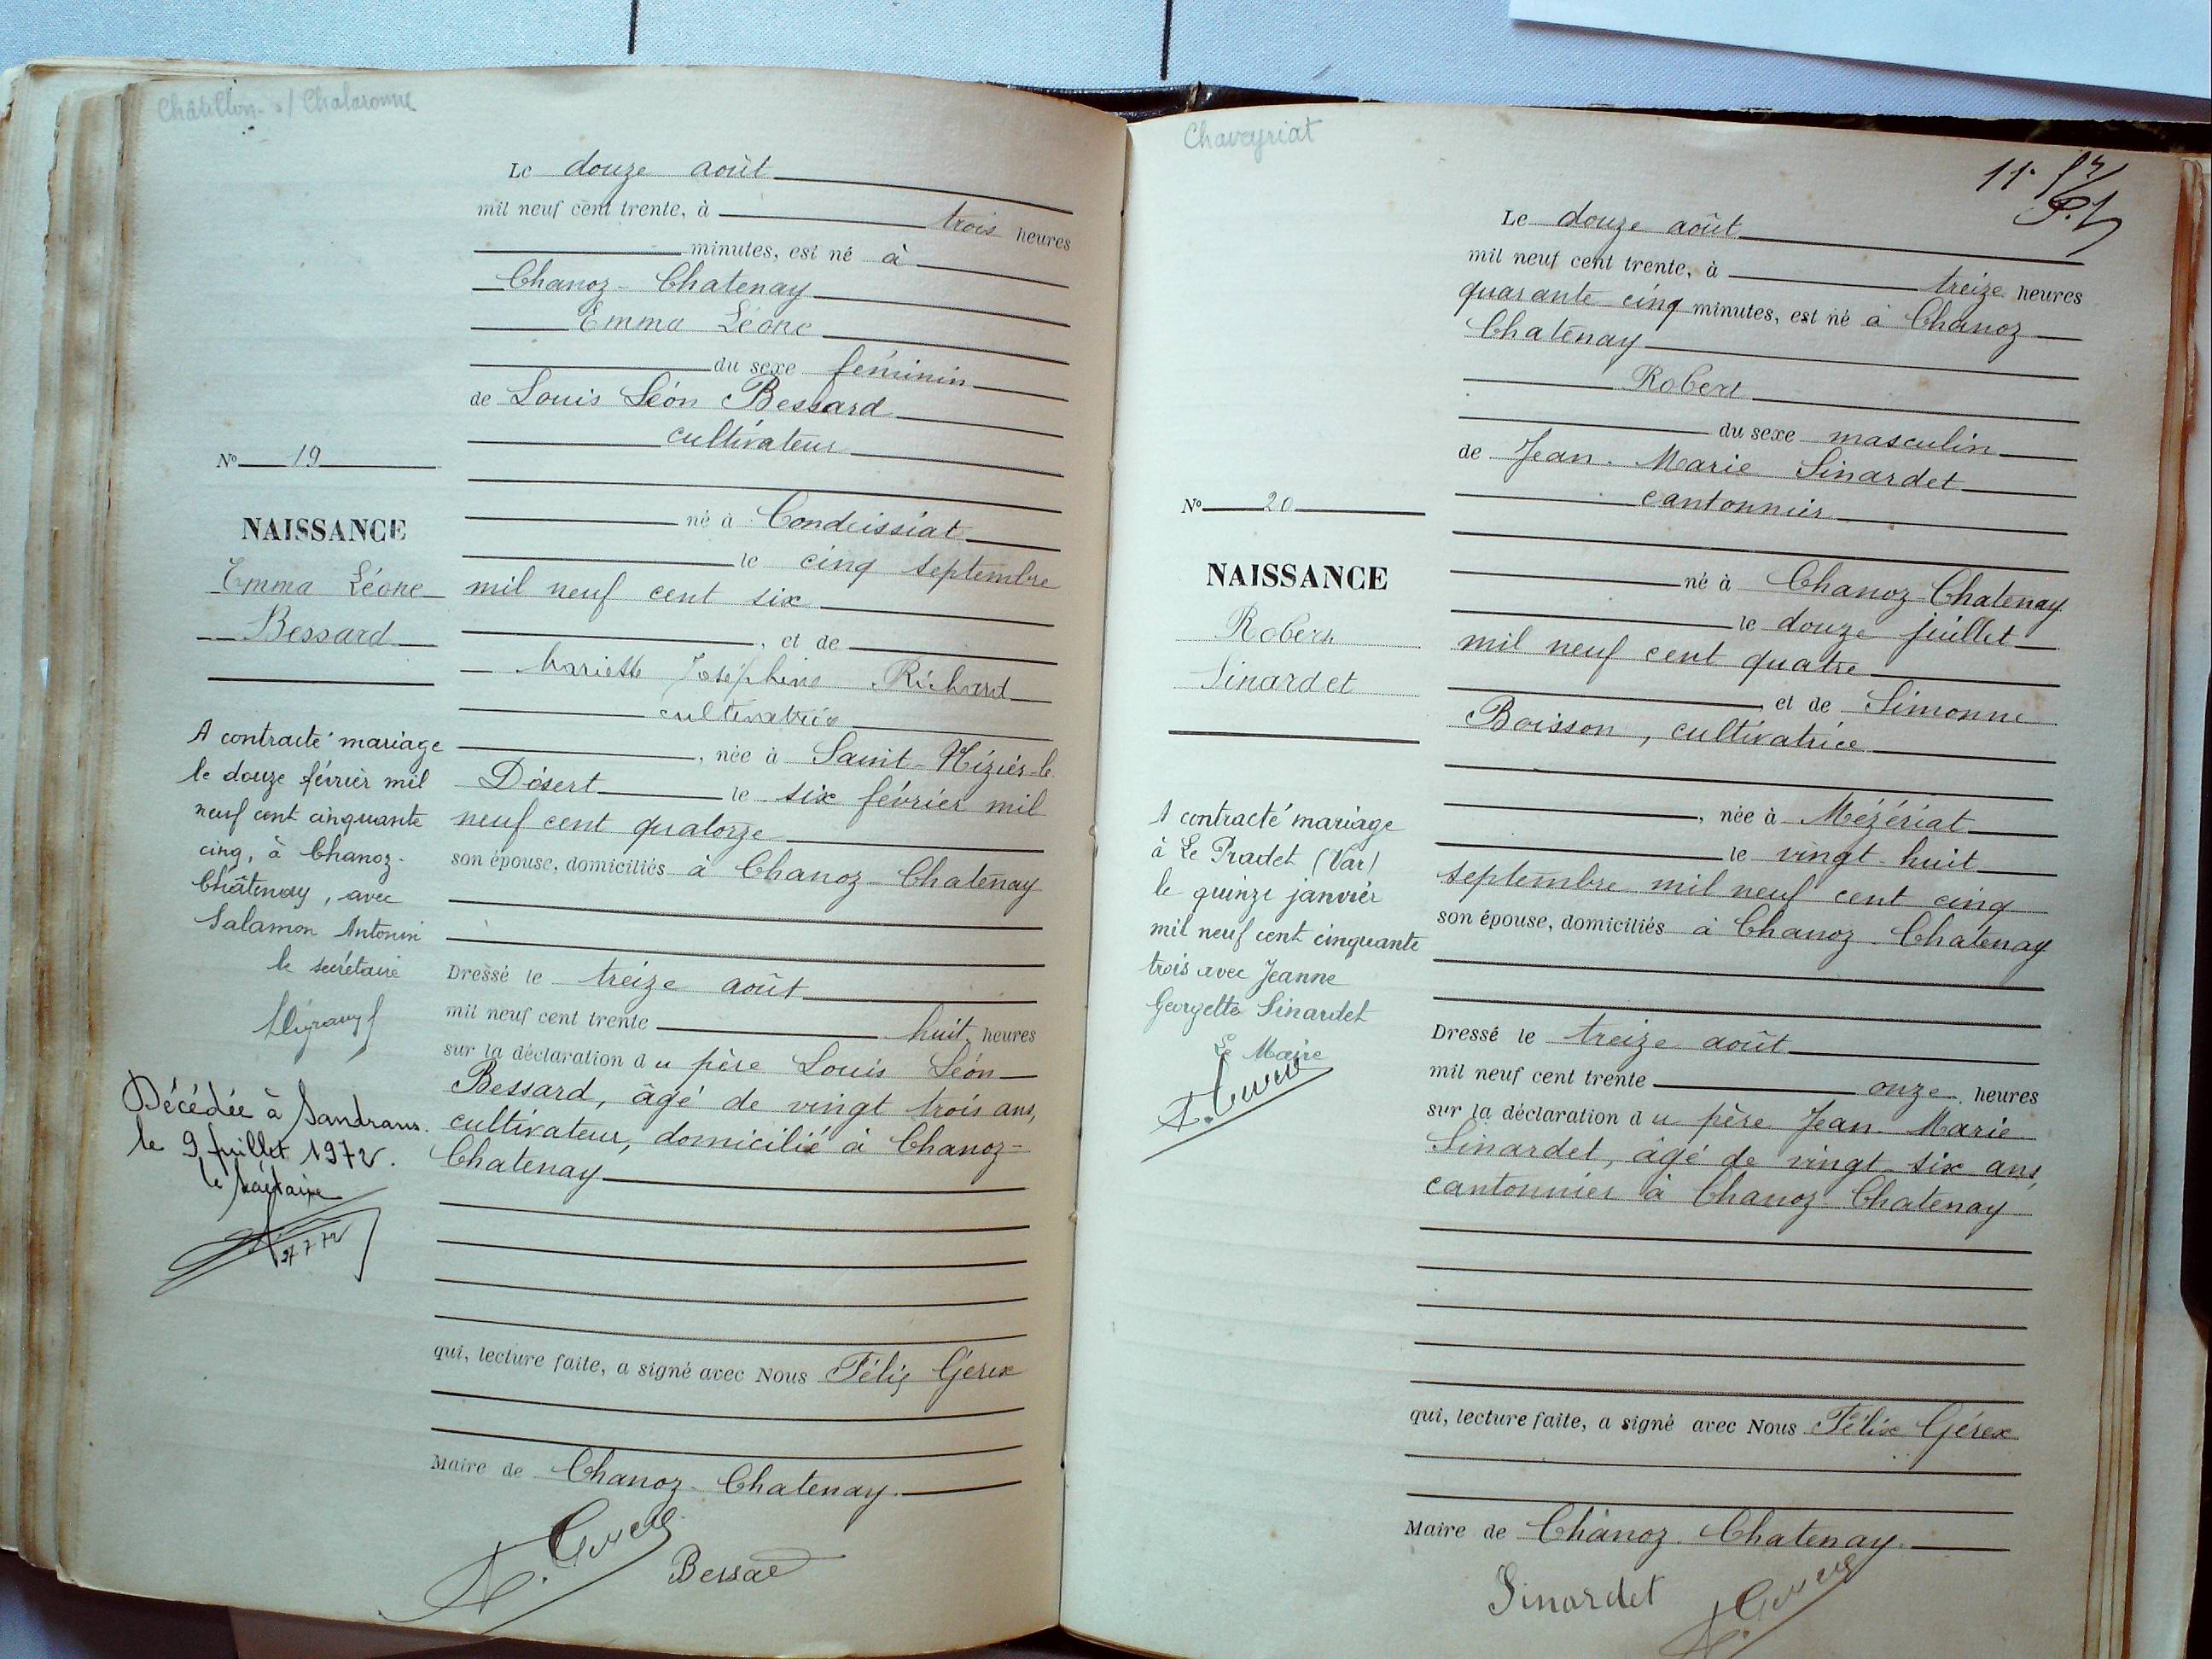 Châtillon-s/ Chalaronne
Le douze août
mil neuf cent trente, à trois heures
minutes, est né à
Chanoz-Chatenay
Emma Léone
du sexe féminin
de Louis Léon Bessard
cultivateur
né à Condeissiat
le cinq septembre
mil neuf cent six
, et de
Mariette Joséphine Richard
cultivatrice
, née à Saint-Nizier-le
Désert le six février mil
neuf cent quatorze
son épouse, domiciliés à Chanoz-Chatenay
Dressé le treize août
mil neuf cent trente huit heures
sur la déclaration du père Louis Léon
Bessard, âgé de vingt trois ans,
cultivateur, domicilié à Chanoz-
Chatenay
qui, lecture faite, a signé avec Nous Félix Gérex
Maire de Chanoz-Chatenay.
Bessard
No 19
NAISSANCE
Emma Léone
Bessard
A contracté mariage
le douze février mil
neuf cent cinquante
cinq, à Chanoz-
Châtenay, avec
Salamon Antonin
le secrétaire
Décédée à Sandrans.
le 9 juillet 1972.
le secrétaire
27 7 72
Chaveyriat
11.
Le douze août
mil neuf cent trente, à treize heures
quarante cinq minutes, est né à Chanoz
Chatenay
Robert
du sexe masculin
de Jean-Marie Sinardet
cantonnier
né à Chanoz-Chatenay
le douze juillet
mil neuf cent quatre
, et de Simonne
Boisson, cultivatrice
, née à Mézériat
le vingt-huit
septembre mil neuf cent cinq
son épouse, domiciliés à Chanoz-Chatenay
Dressé le treize août
mil neuf cent trente onze heures
sur la déclaration du père Jean-Marie
Sinardet, âgé de vingt-six ans,
cantonnier à Chanoz-Chatenay
qui, lecture faite, a signé avec Nous Félix Gérex
Maire de Chanoz-Chatenay.
Sinardet
No 20
NAISSANCE
Robert
Sinardet
A contracté mariage
à Le Pradet (Var)
le quinze janvier
mil neuf cent cinquante
trois avec Jeanne
Georgette Sinardet
Le Maire